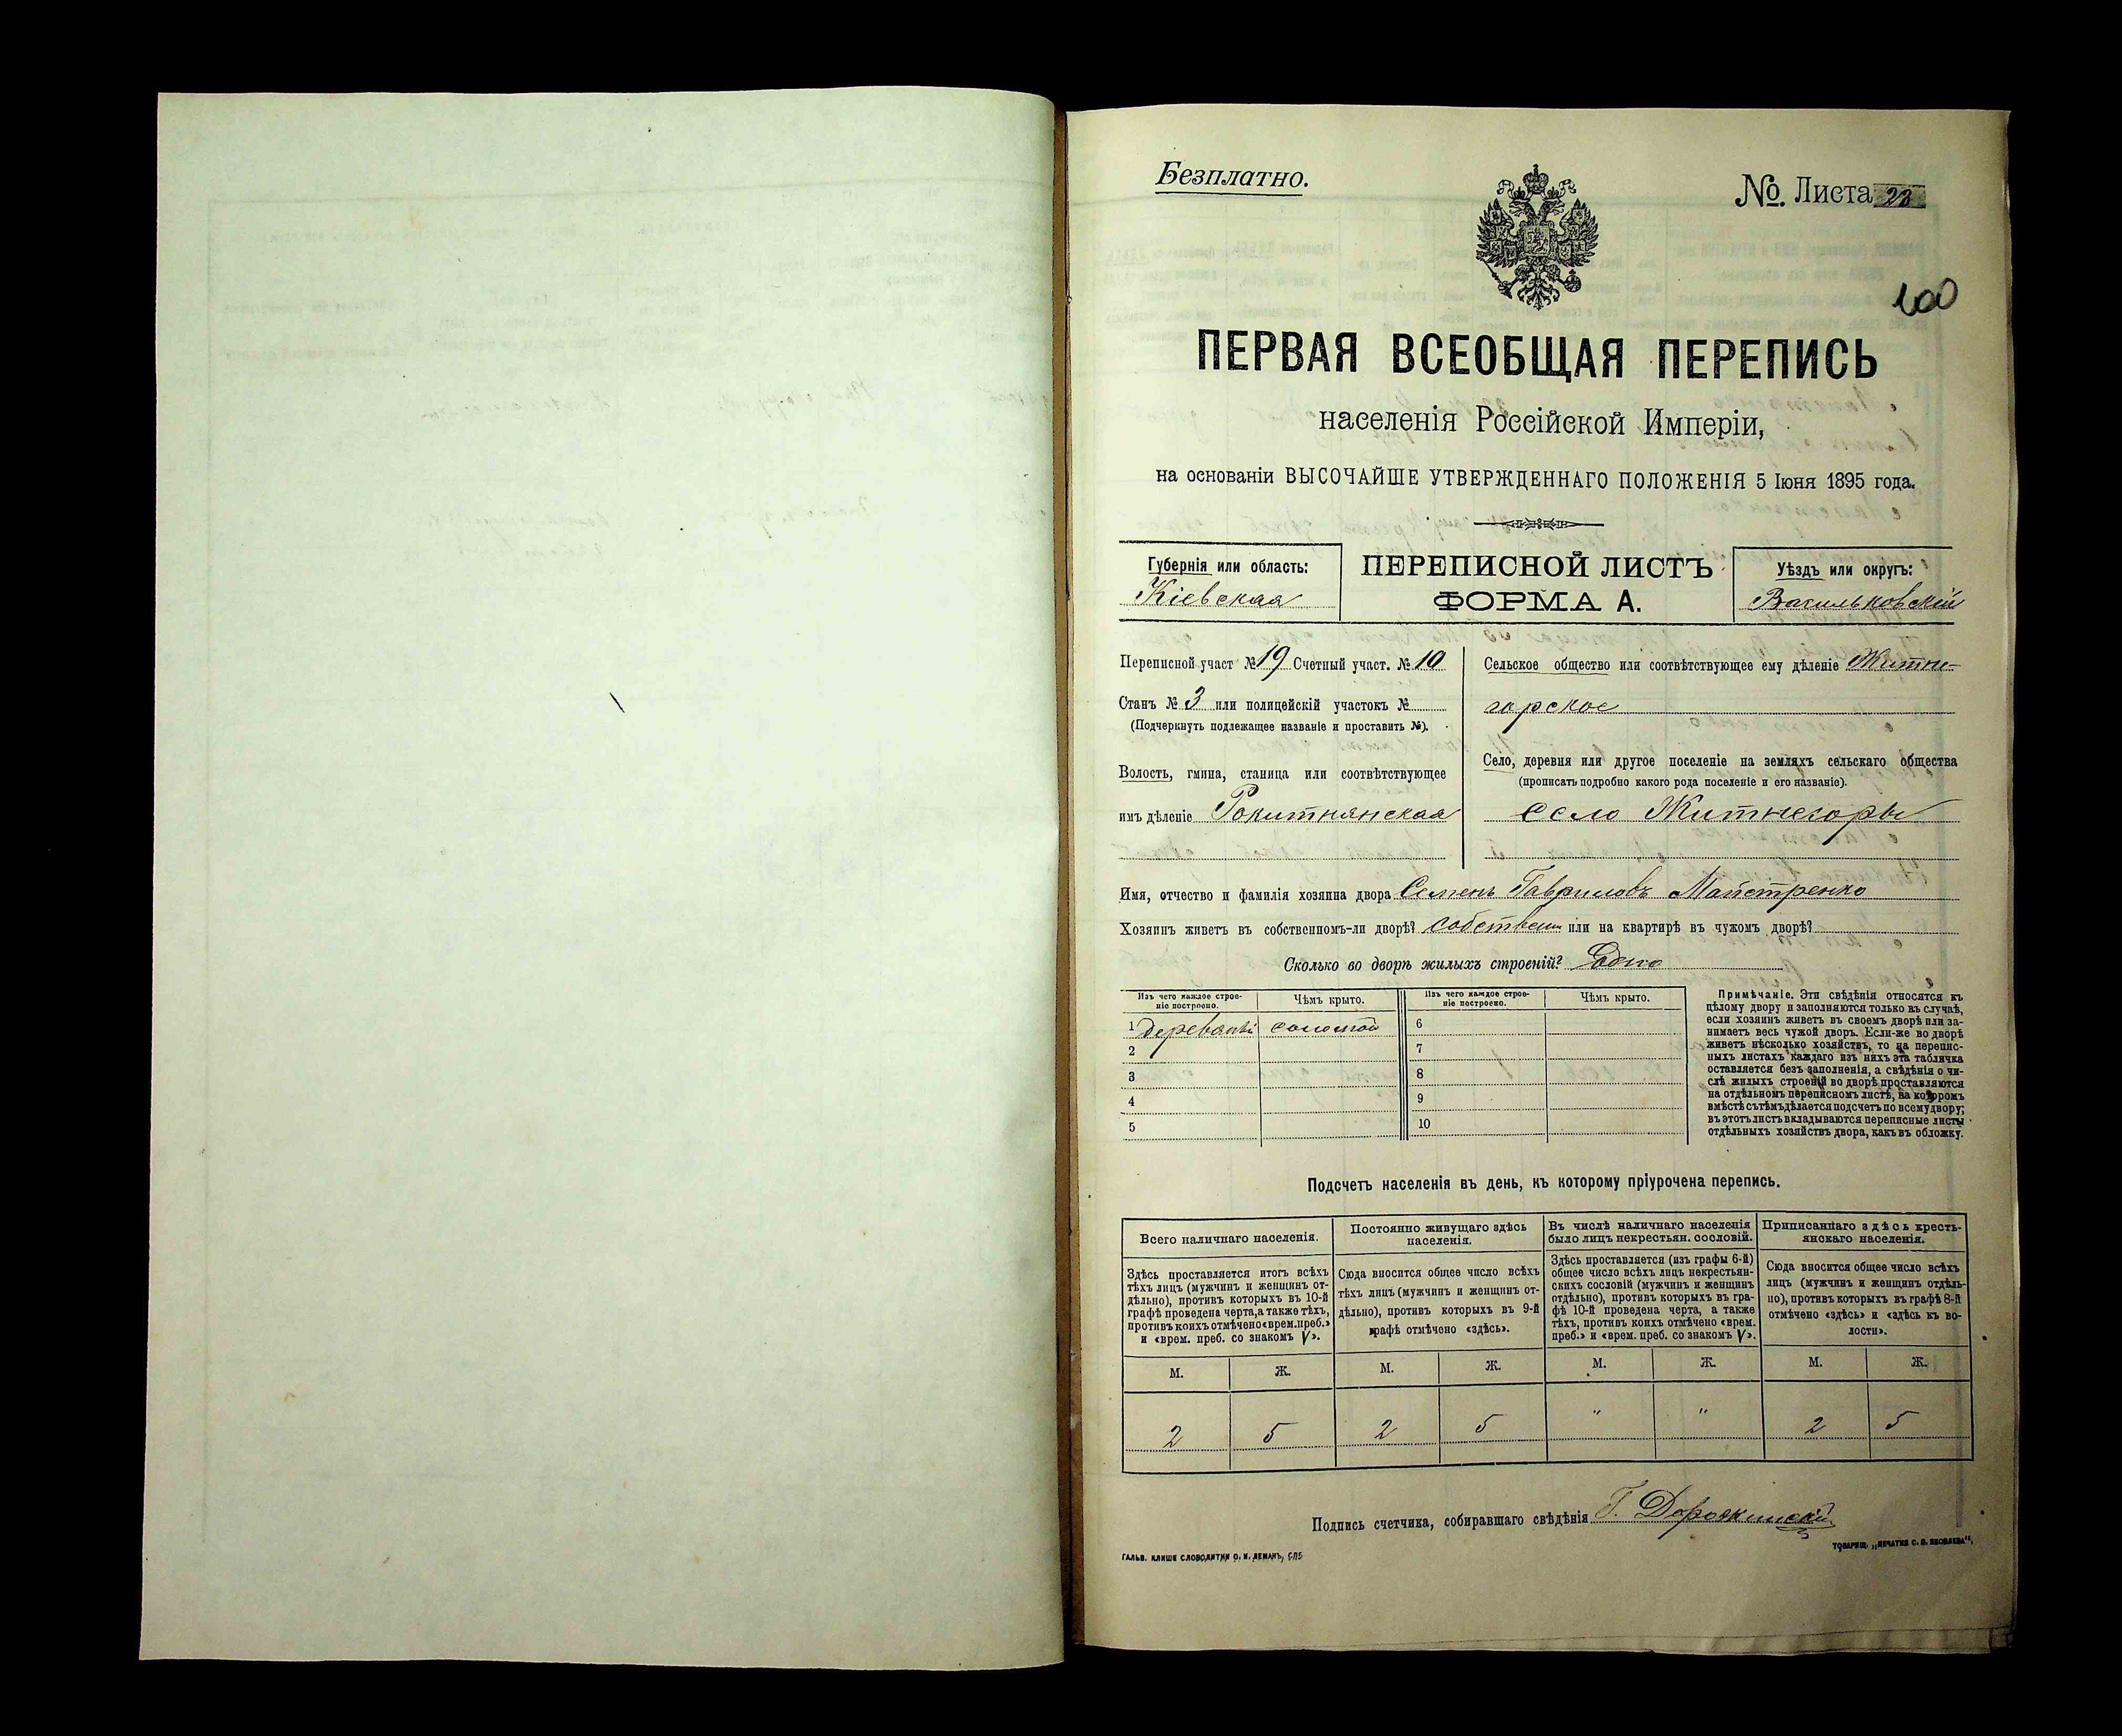 Безплатно.
№. Листа 28
100
ПЕРВАЯ ВСЕОБЩАЯ ПЕРЕПИСЬ
населенія Россійской Имперіи,
на основаніи ВЫСОЧАЙШЕ УТВЕРЖДЕННАГО ПОЛОЖЕНІЯ 5 Іюня 1895 года.
Губернія или область:
Кіевская
ПЕРЕПИСНОЙ ЛИСТЪ
ФОРМА А.
Уѣздъ или округъ:
Васильковскій
Переписной участ №19 Счетный участ. № 10
Станъ № 3 или полицейскій участокъ №
(Подчеркнуть подлежащее названіе и проставить №).
Волость, гмина, станица или соотвѣтствующее
имъ дѣленіе Рокитнянская
Сельское общество или соотвѣтствующее ему дѣленіе Житне-
горское
Село, деревня или другое поселеніе на земляхъ сельскаго общества
(прописать подробно какого рода поселеніе и его названіе).
село Житнегоры
Имя, отчество и фамилія хозяина двора Семенъ Гавриловъ Майстренко
Хозяинъ живетъ въ собственномъ-ли дворѣ? собствен или на квартирѣ въ чужомъ дворѣ?
Сколько во дворѣ жилыхъ строеній? Одно
Изъ чего каждое строе-
ніе построено.
Чѣмъ крыто.
Изъ чего каждое строе-
ніе построено.
Чѣмъ крыто.
1 соломой
2
3
4
5
6
7
8
9
10
Примѣчаніе. Эти свѣдѣнія относятся къ
цѣлому двору и заполняются только въ случаѣ,
если хозяинъ живетъ въ своемъ дворѣ или за-
нимаетъ весь чужой дворъ. Если-же во дворѣ
живетъ нѣсколько хозяйствъ, то на перепис-
ныхъ листахъ каждаго изъ нихъ эта табличка
оставляется безъ заполненія, а свѣдѣнія о чи-
слѣ жилыхъ строеній во дворѣ проставляются
на отдѣльномъ переписномъ листѣ, на которомъ
вмѣстѣ съ тѣмъ дѣлается подсчетъ по всему двору;
въ этотъ листъ вкладываются переписные листы
отдѣльныхъ хозяйствъ двора, какъ въ обложку.
Подсчетъ населенія въ день, къ которому пріурочена перепись.
Всего наличнаго населенія.
Здѣсь проставляется итогъ всѣхъ
тѣхъ лицъ (мужчинъ и женщинъ от-
дѣльно), противъ которыхъ въ 10-й
графѣ проведена черта, а также тѣхъ,
противъ коихъ отмѣчено «врем. преб.»
и «врем. преб. со знакомъ V».
М. Ж.
2 5
Постоянно живущаго здѣсь
населенія.
Сюда вносится общее число всѣхъ
тѣхъ лицъ (мужчинъ и женщинъ от-
дѣльно), противъ которыхъ въ 9-й
графѣ отмѣчено «здѣсь».
М. Ж.
2 5
Въ числѣ наличнаго населенія
было лицъ некрестьян. сословій.
Здѣсь проставляется (изъ графы 6-й)
общее число всѣхъ лицъ некрестьян-
скихъ сословій (мужчинъ и женщинъ
отдѣльно), противъ которыхъ въ гра-
фѣ 10-й проведена черта, а также
тѣхъ, противъ коихъ отмѣчено «врем.
преб.» и «врем. преб. со знакомъ V».
М. Ж.
" "
Приписаннаго здѣсь кресть-
янскаго населенія.
Сюда вносится общее число всѣхъ
лицъ (мужчинъ и женщинъ отдѣль-
но), противъ которыхъ въ графѣ 8-й
отмѣчено «здѣсь» и «здѣсь къ во-
лости».
М. Ж.
2 5
Подпись счетчика, собиравшаго свѣдѣнія Г. Дорожинскій
ГАЛЬВ. КЛИШЕ СЛОВОЛИТНИ О. И. ЛЕМАНЪ, СПБ
ТОВАРИЩ. „ПЕЧАТНЯ С. П. ЯКОВЛЕВА".